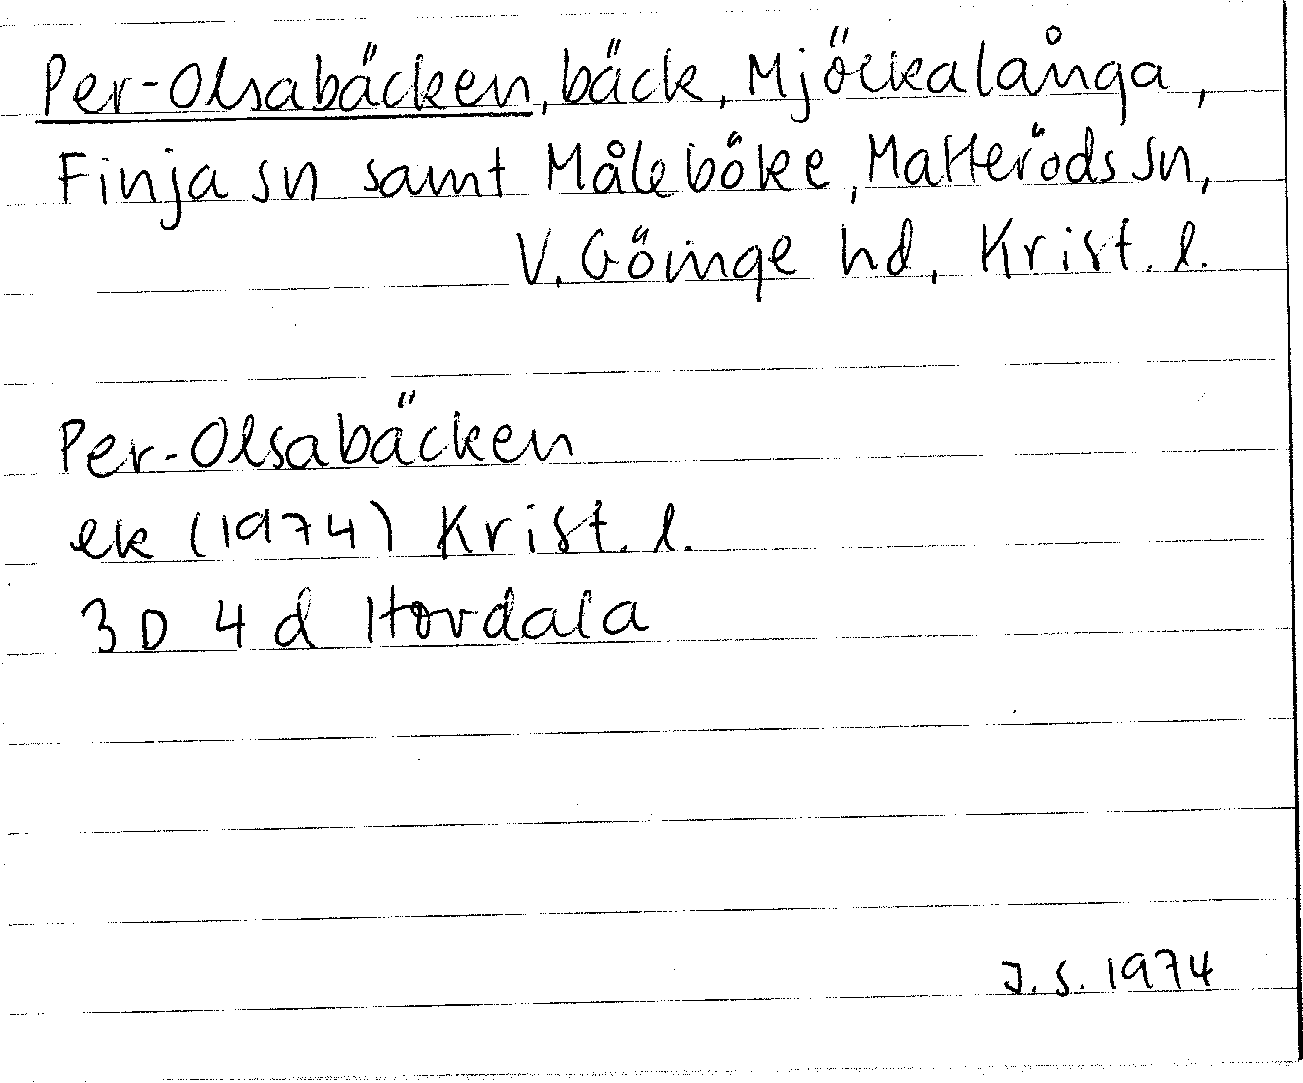 Per-Olsabäcken, bäck, Mjöckalånga,
Finja sn samt Måleböke, Matteröds sn,
V. Göinge hd, Krist. l.
Per-Olsabäcken
ek (1974) Krist. l.
3D 4d Hovdala
J.S. 1974